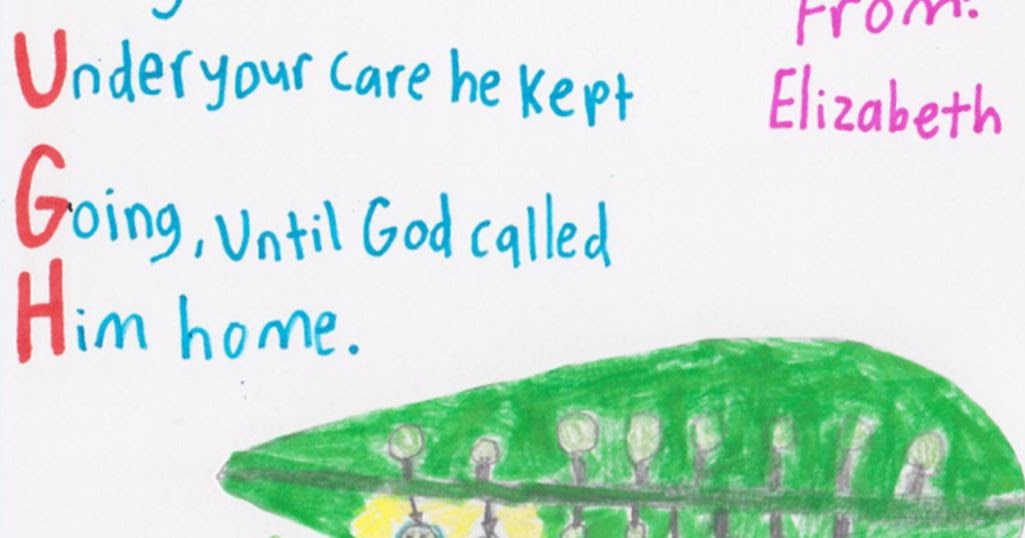 From:
Elizabeth
Under your care he Kept
Going, Until God called
Him home.